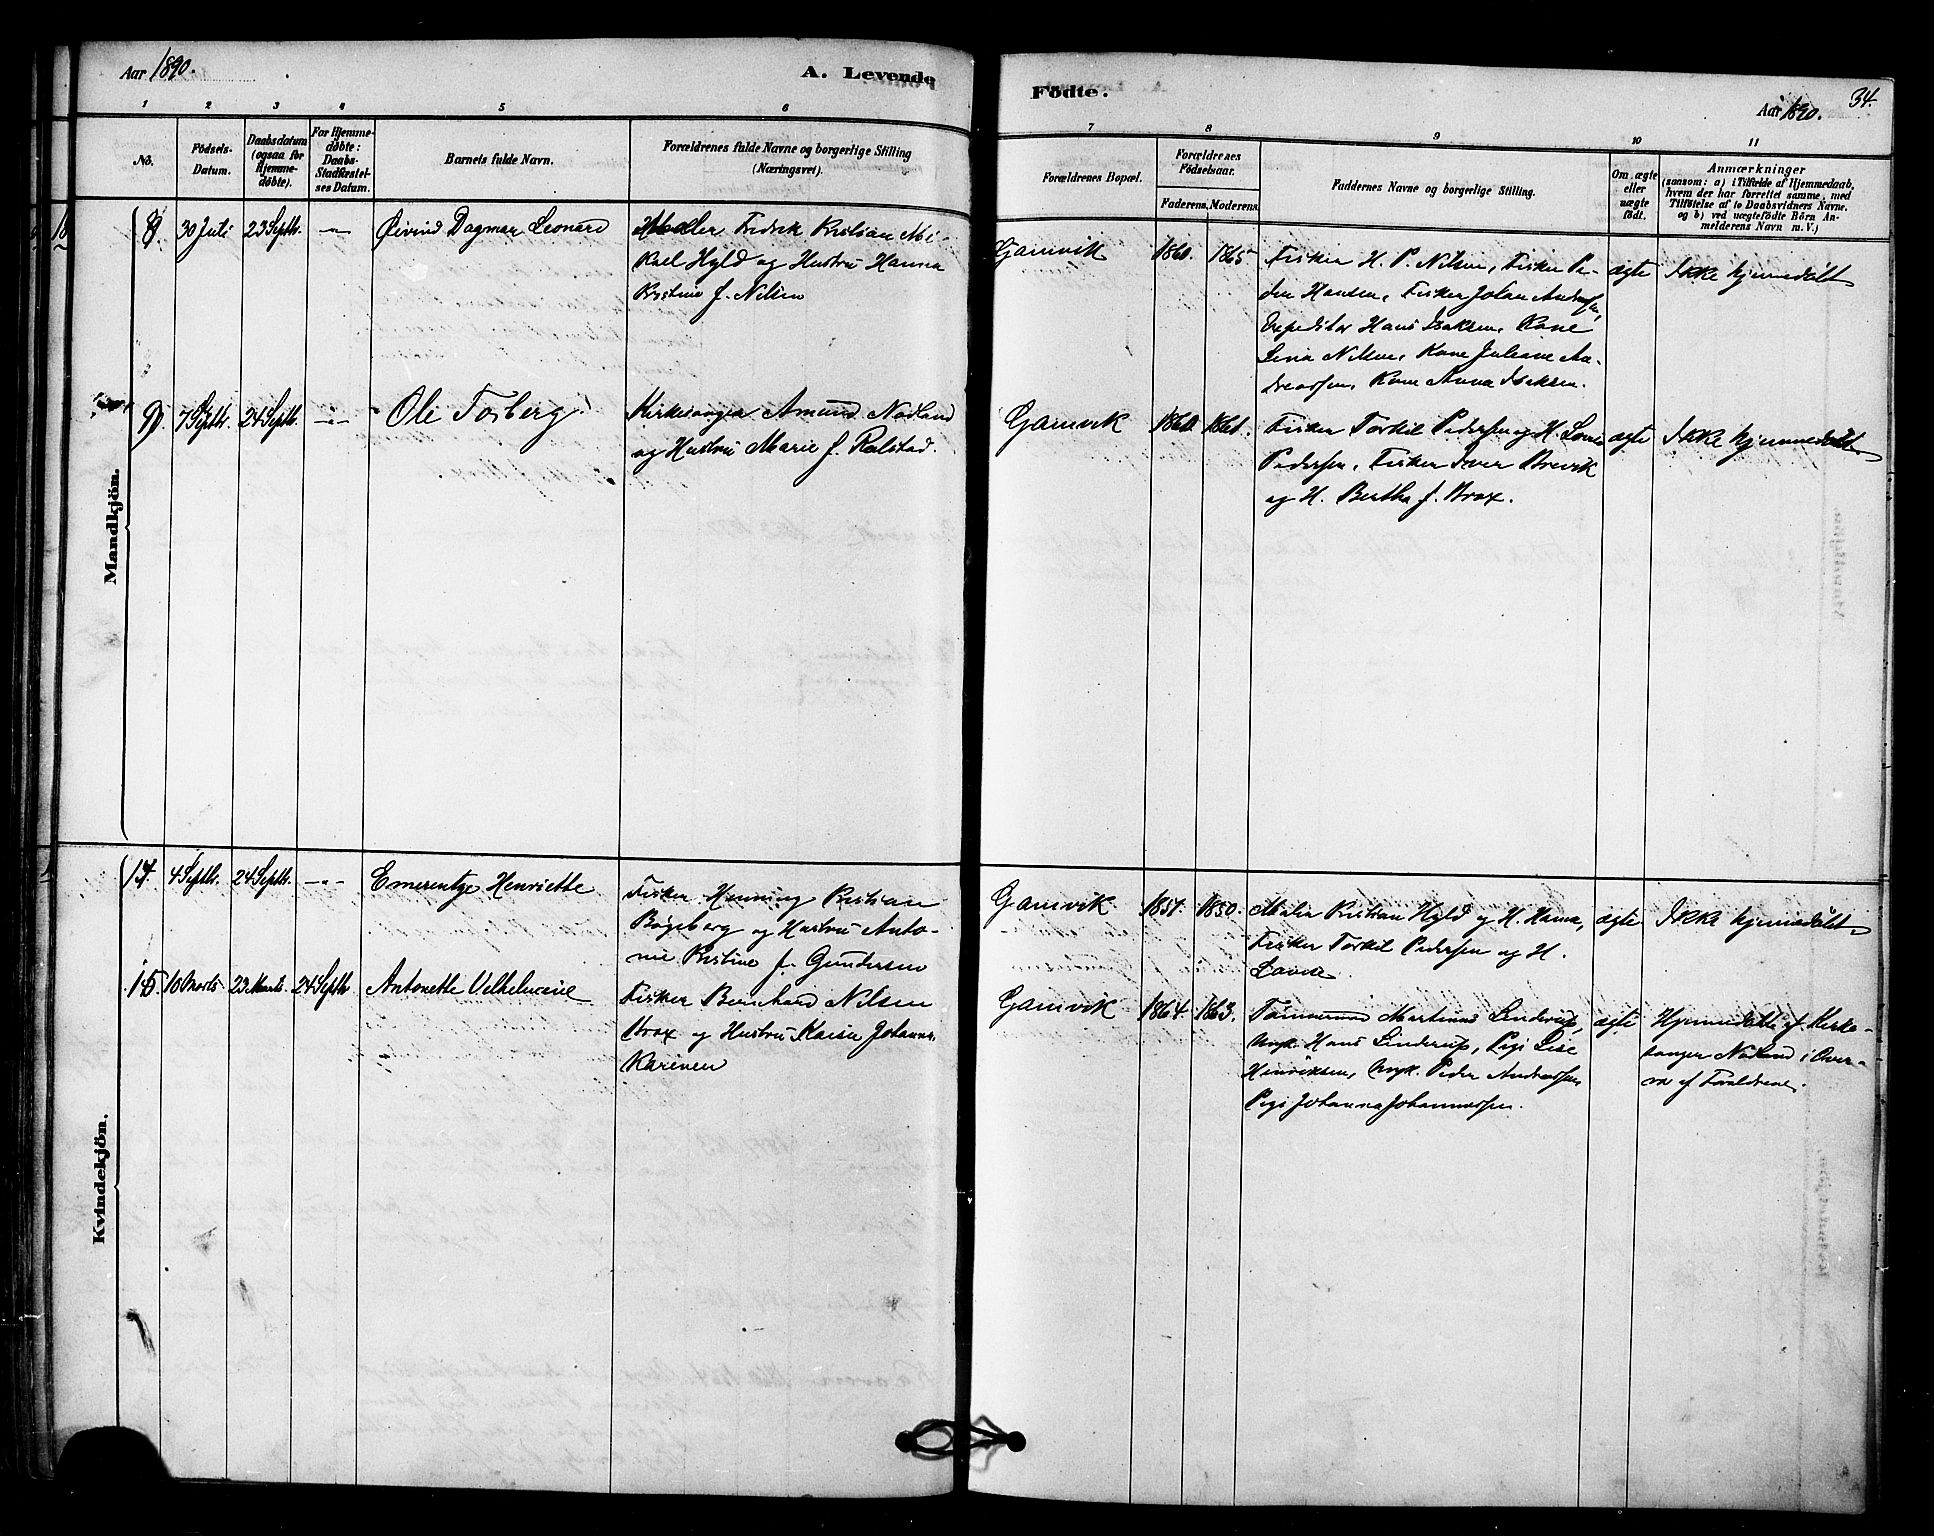 Aar 1890.
A. Levende
Födte.
Aar 1890.
34.
1 2 3 4 5 6
7 8 9 10 11
No.
Födsels-Datum.
Daabsdatum (ogsaa for Hjemmedøbte).
For Hjemmedøbte: Daabs-Stadfæstelses Datum.
Barnets fulde Navn.
Forældrenes fulde Navne og borgerlige Stilling (Næringsvei).
Forældrenes Bopæl.
Forældrenes Födselsaar.
Faderens. Moderens.
Faddernes Navne og borgerlige Stilling.
Om ægte eller uægte födt.
Anmærkninger
(saasom: a) i Tilfælde af Hjemmedaab,
hvem der har forrettet samme, med
Tilföielse af to Daabsvidners Navne.
og b) ved uægtefödte Börn Anmelderens Navn m. V.)
Mandkjön.
8. 30 Juli 23 Septb. -"- Øivind Dagmar Leonard
Fredrik Kristian Mi-
kael Hyld og Hustru Hanna
Kristine f. Nilsen
Gamvik 1860. 1865
Fisker H. P. Nilsen, Fisker Pe-
der Hansen, Fisker Johan Andreassen,
Expeditør Hans Isaksen, Kone
Lina Nilsen, Kone Juliane An-
dreassen, Kone Anna Isaksen.
ægte Ikke hjemmedøbt
9. 7 Septb. 24 Septb. -"- Ole Torberg
Kirkesanger Amund Nodland
og Hustru Marie f. Rolstad.
Gamvik 1860. 1861.
Fisker Torkil Pedersen og H. Lovise
Pedersen, Fisker Iver Brevik
og H. Bertha f. Brox.
ægte Ikke hjemmedøbt
Kvindekjön.
14. 4 Septb. 24 Septb. -"- Emerentze Henriette
Fisker Henning Kristian
Bøgeberg og Hustru Anto-
nie Kristine f. Gundersen
Gamvik 1851. 1850.
Maler Kristian Hyld og H. Hanna,
Fisker Torkil Pedersen og H.
Lovise
ægte Ikke hjemmedøbt
15. 10 Marts 23 Marts. 24 Septb. Antonette Vilhelmine
Fisker Bernhard Nilsen
Brox og Hustru Kaisa Johanns.
Karinen
Gamvik 1864. 1863.
Tømmermd. Martinus Linderup,
Ungk. Hans Linderup, Pige Lise
Hinriksen, Ungk. Peder Andreassen,
Pige Johanna Johannessen.
ægte Hjemmedøbt af Kirke-
sanger Nodland i Over-
vær af Forældrene.